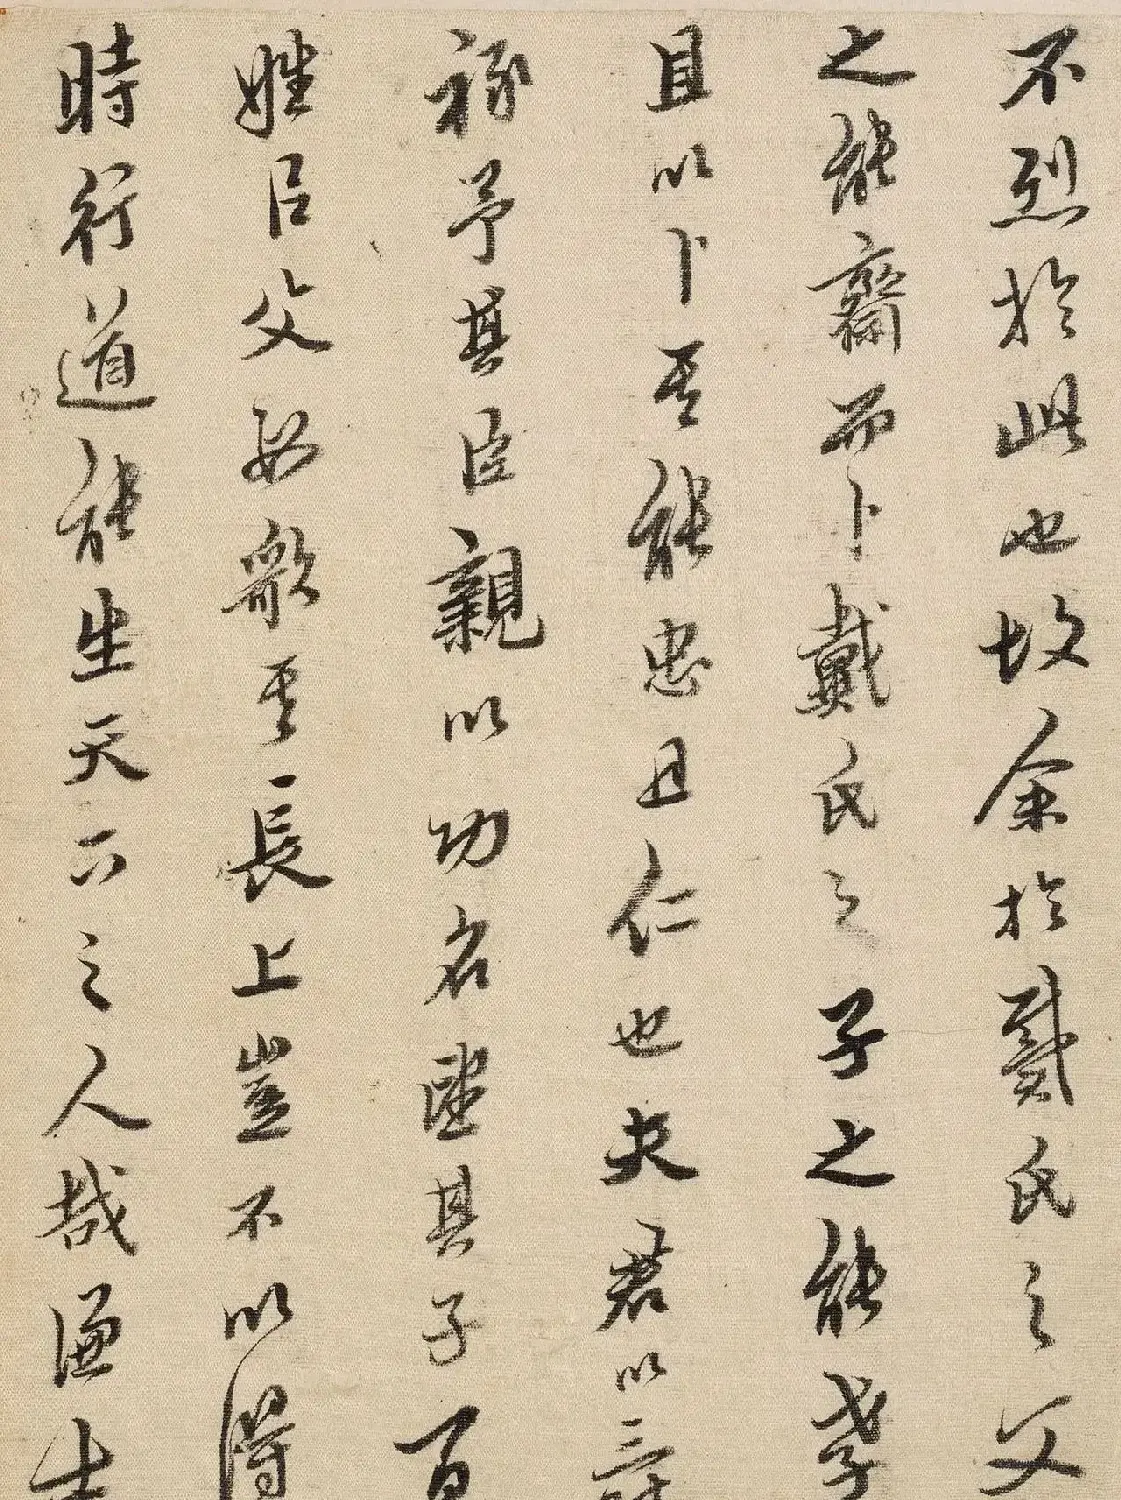 不烈於此也故余於戴氏之父
之能齋而卜戴氏之子之能孝
且以卜其能忠且仁也夫君以三
祿予其臣親以功名望其子百
姓㠯父母歌其長上豈不以得
時行道能生天下之人哉謙生